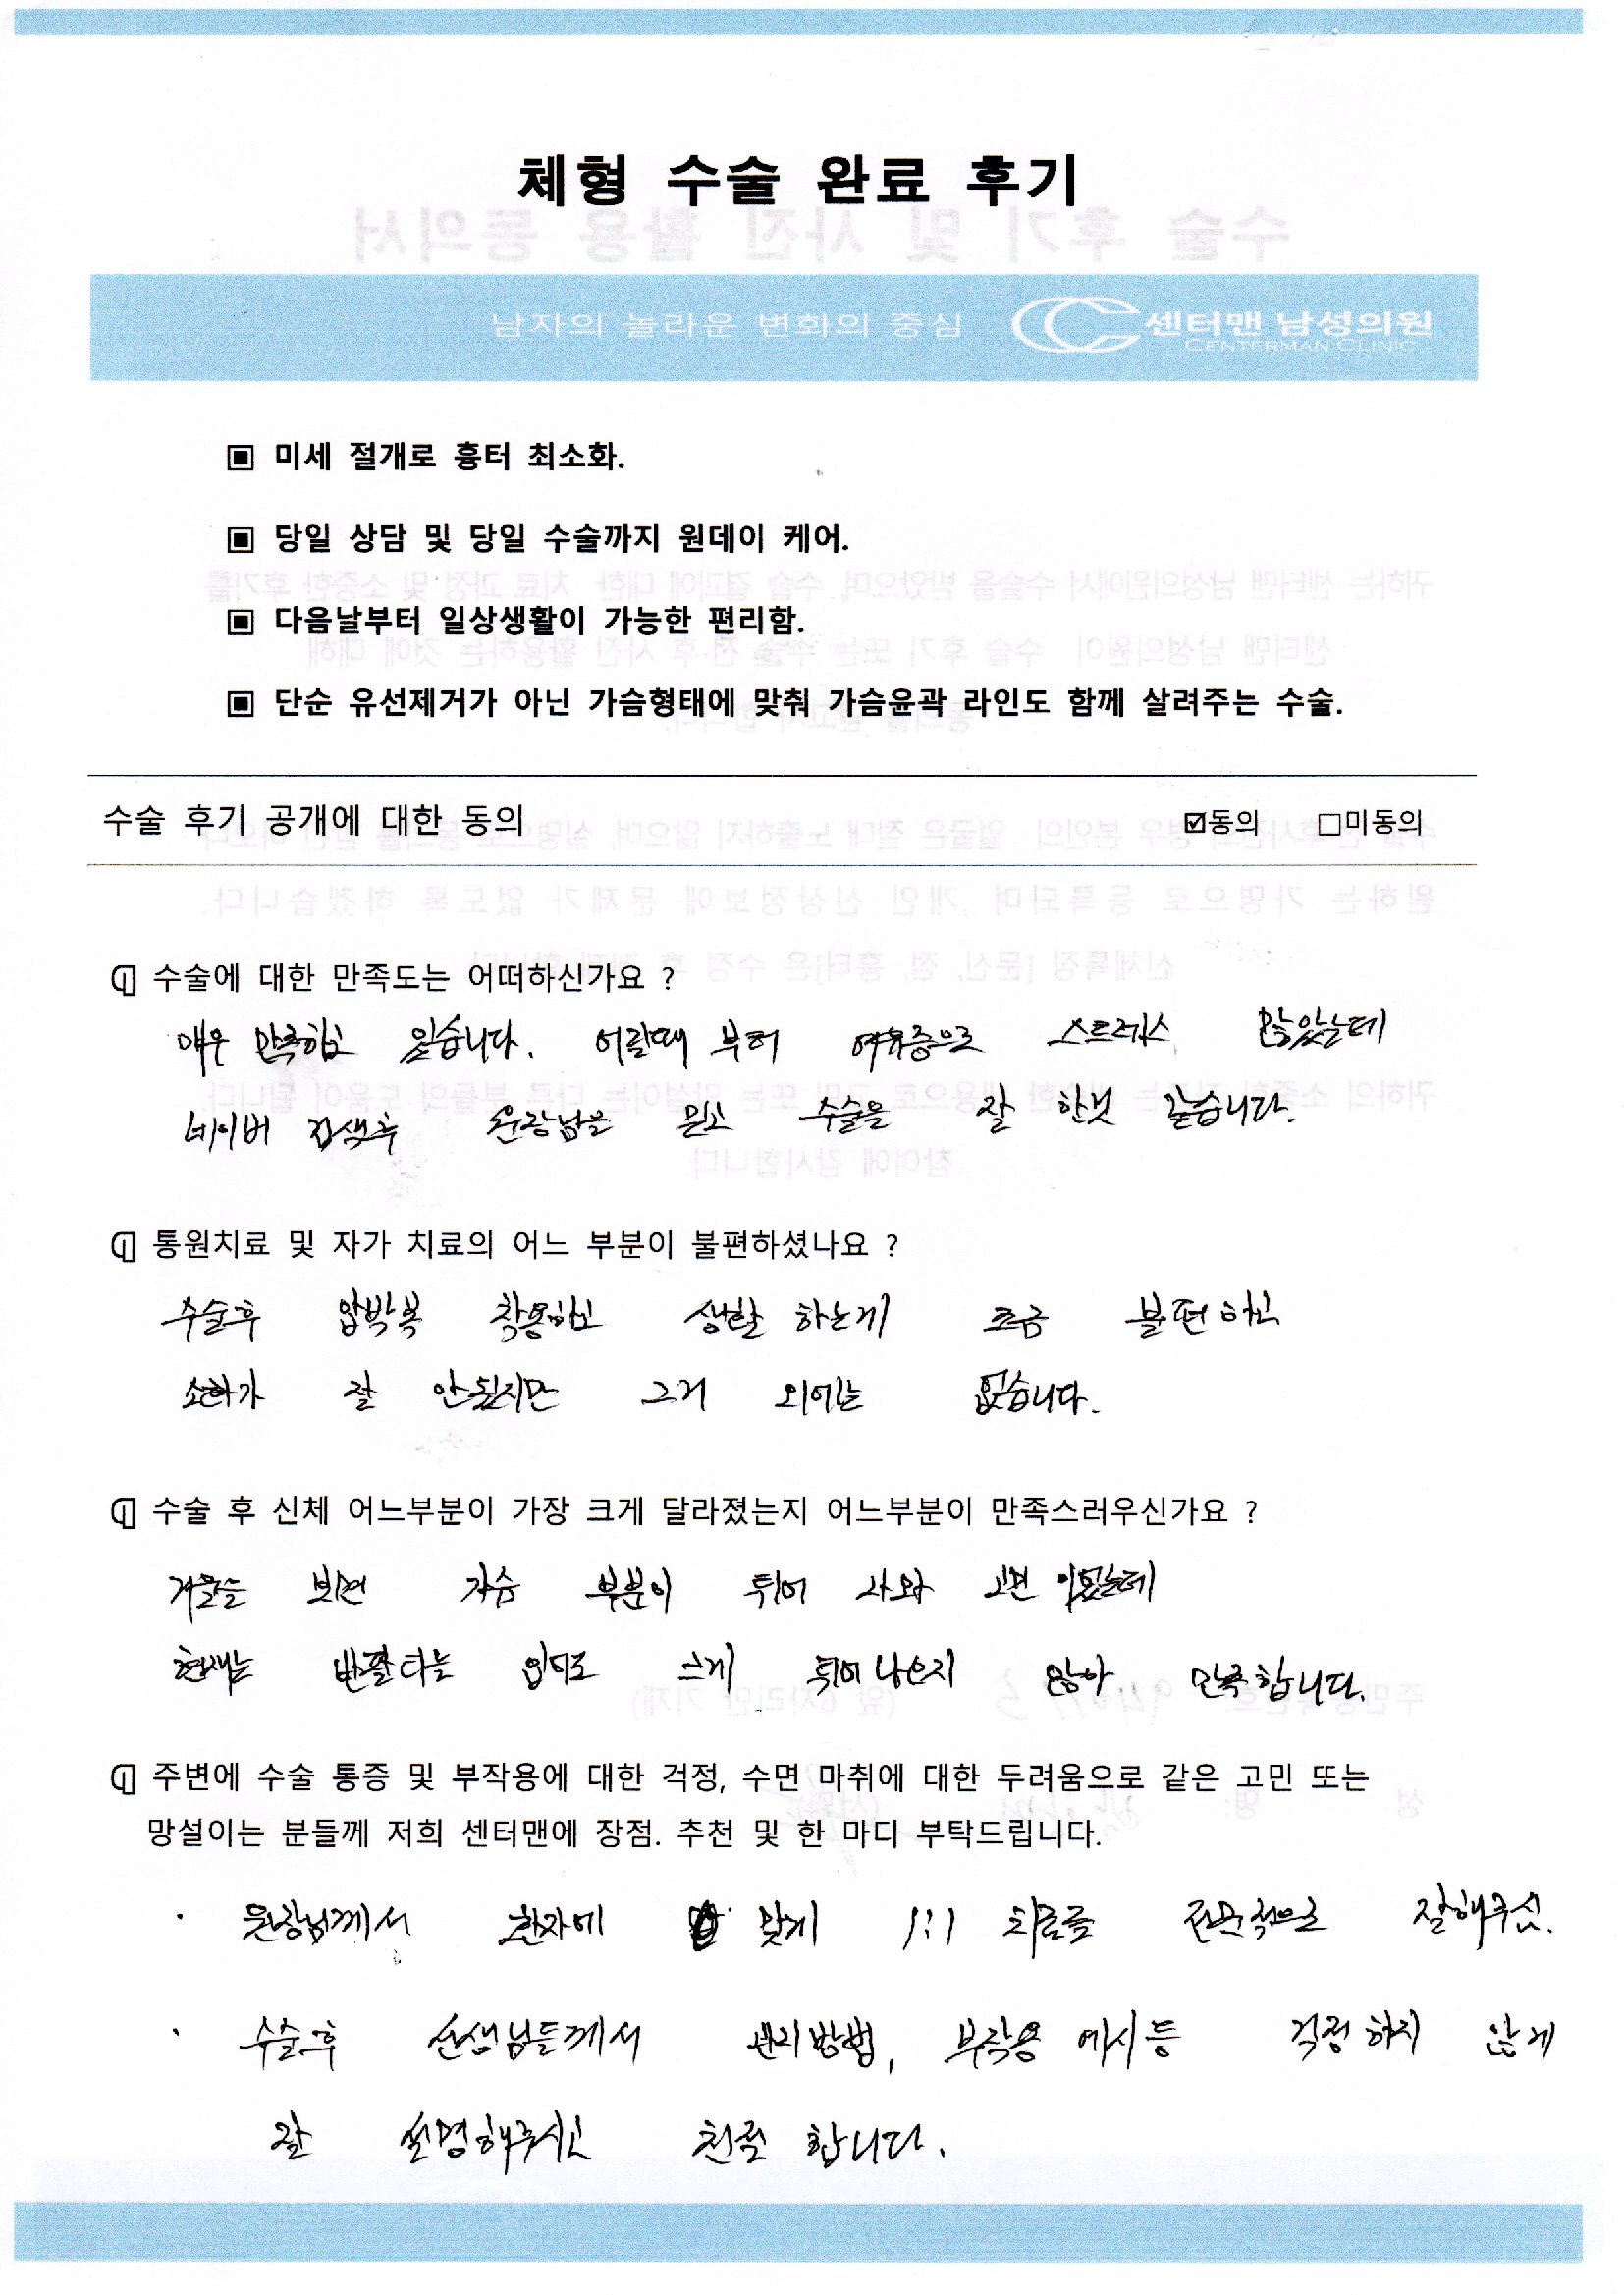 체형 수술 완료 후기
남자의 놀라운 변화의 중심
센터맨 남성의원
CENTERMAN CLINIC
▣ 미세 절개로 흉터 최소화.
▣ 당일 상담 및 당일 수술까지 원데이 케어.
▣ 다음날부터 일상생활이 가능한 편리함.
▣ 단순 유선제거가 아닌 가슴형태에 맞춰 가슴윤곽 라인도 함께 살려주는 수술.
수술 후기 공개에 대한 동의 ☑동의 □미동의
수술에 대한 만족도는 어떠하신가요 ?
매우 만족하고 있습니다. 어릴때 부터 여유증으로 스트레스 많았는데
네이버 검색후 원장님을 믿고 수술을 잘 한것 같습니다.
통원치료 및 자가 치료의 어느 부분이 불편하셨나요 ?
수술후 압박복 착용하고 생활 하는게 조금 불편하고
소화가 잘 안됬지만 그거 외에는 없습니다.
수술 후 신체 어느부분이 가장 크게 달라졌는지 어느부분이 만족스러우신가요 ?
거울을 보면 가슴 부분이 튀어 나와 고민 이였는데
현재는 반팔티를 입어도 크게 튀어나오지 않아 만족합니다.
주변에 수술 통증 및 부작용에 대한 걱정, 수면 마취에 대한 두려움으로 같은 고민 또는
망설이는 분들께 저희 센터맨에 장점. 추천 및 한 마디 부탁드립니다.
· 원장님께서 환자에 맞게 1:1 치료를 전문적으로 잘해주심.
· 수술후 선생님들께서 관리방법, 부작용 예시등 걱정하지 않게
잘 설명해주시고 친절 합니다.